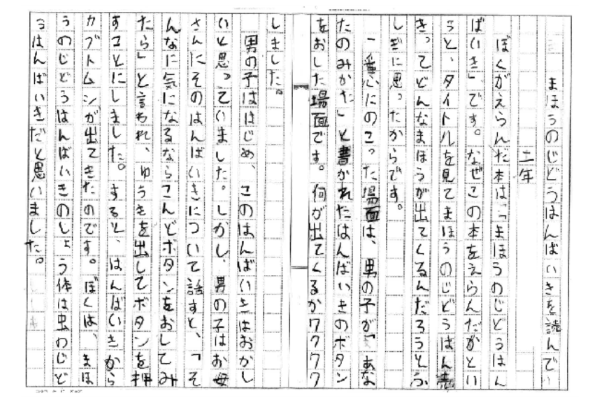 まほうのじどうはんばいきを読んで
二年
ぼくがえらんだ本は、「まほうのじどうはん
ばいき」です。なぜこの本をえらんだかとい
うと、タイトルを見てまほうのじどうはん売
きってどんなまほうが出てくるんだろうとふ
しぎに思ったからです。
一番心にのこった場面は、男の子が「あな
たのみかた」と書かれたはんばいきのボタン
をおした場面です。何が出てくるかワクワク
しました。
男の子ははじめ、このはんばいきはおかし
いと思っていました。しかし、男の子はお母
さんにそのはんばいきについて話すと、「そ
んなに気になるならこんどボタンをおしてみ
たら」と言われ、ゆうきを出してボタンを押
すことにしました。すると、はんばいきから
カブトムシが出てきたのです。ぼくは、まほ
うのじどうはんばいきのしょう体は虫のじど
うはんばいきだと思いました。